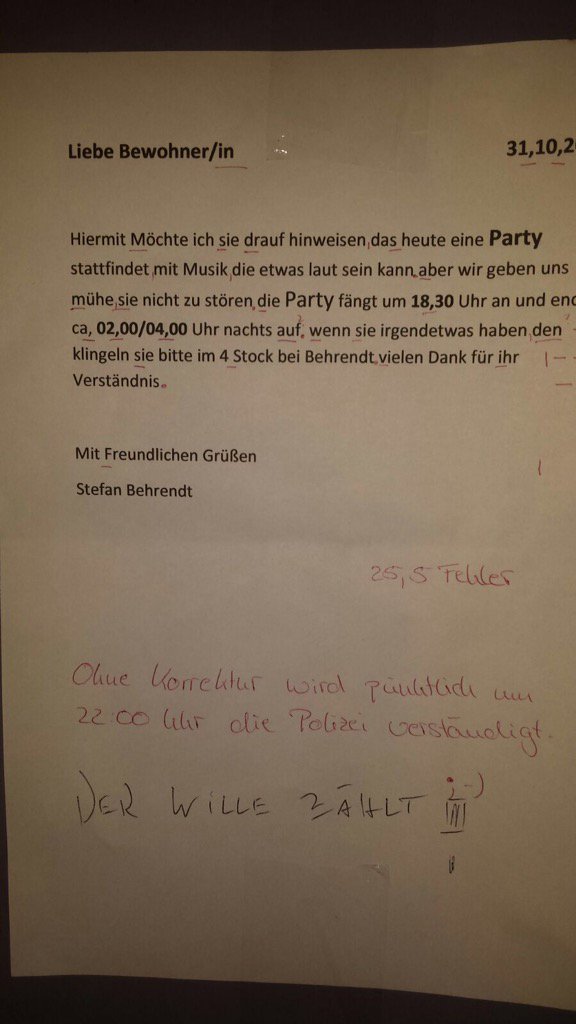 Liebe Bewohner/in 31,10,2
Hiermit Möchte ich sie drauf hinweisen,das heute eine Party
stattfindet mit Musik,die etwas laut sein kann,aber wir geben uns
mühe,sie nicht zu stören,die Party fängt um 18,30 Uhr an und
ca, 02,00/04,00 Uhr nachts auf, wenn sie irgendetwas haben den
klingeln sie bitte im 4 Stock bei Behrendt,vielen Dank für ihr
Verständnis.
Mit Freundlichen Grüßen
Stefan Behrendt
25,5 Fehler
Ohne Korrektur wird pünktlich um
22:00 Uhr die Polizei verständigt.
DER WILLE ZÄHLT ;-)